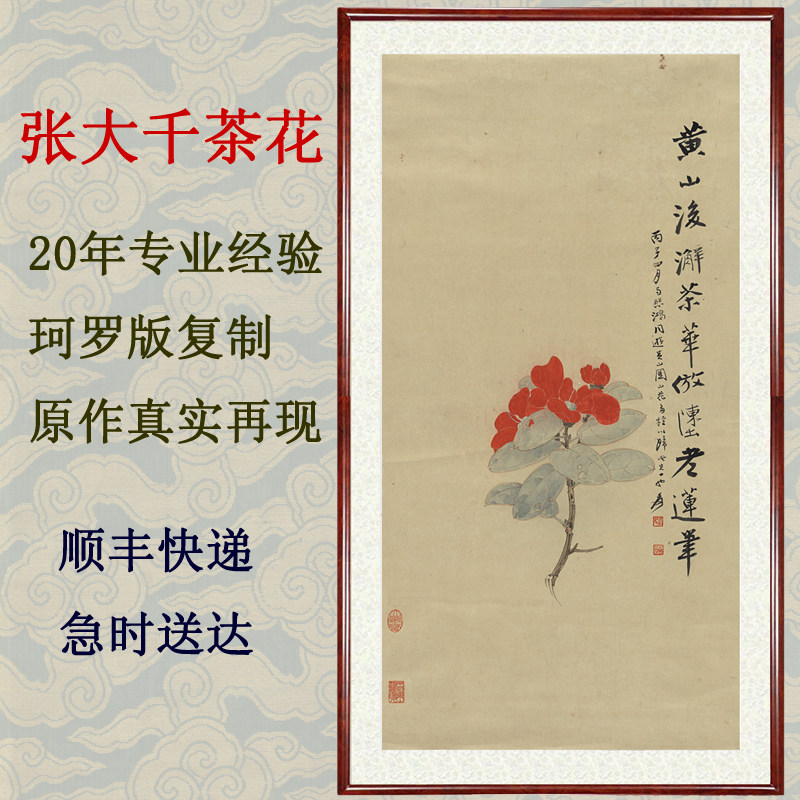 张大千茶花
20年专业经验
珂罗版复制
原作真实再现
顺丰快递
急时送达
黄山后澥茶华仿陈老莲笔
丙子四月与悲鸿同游黄山